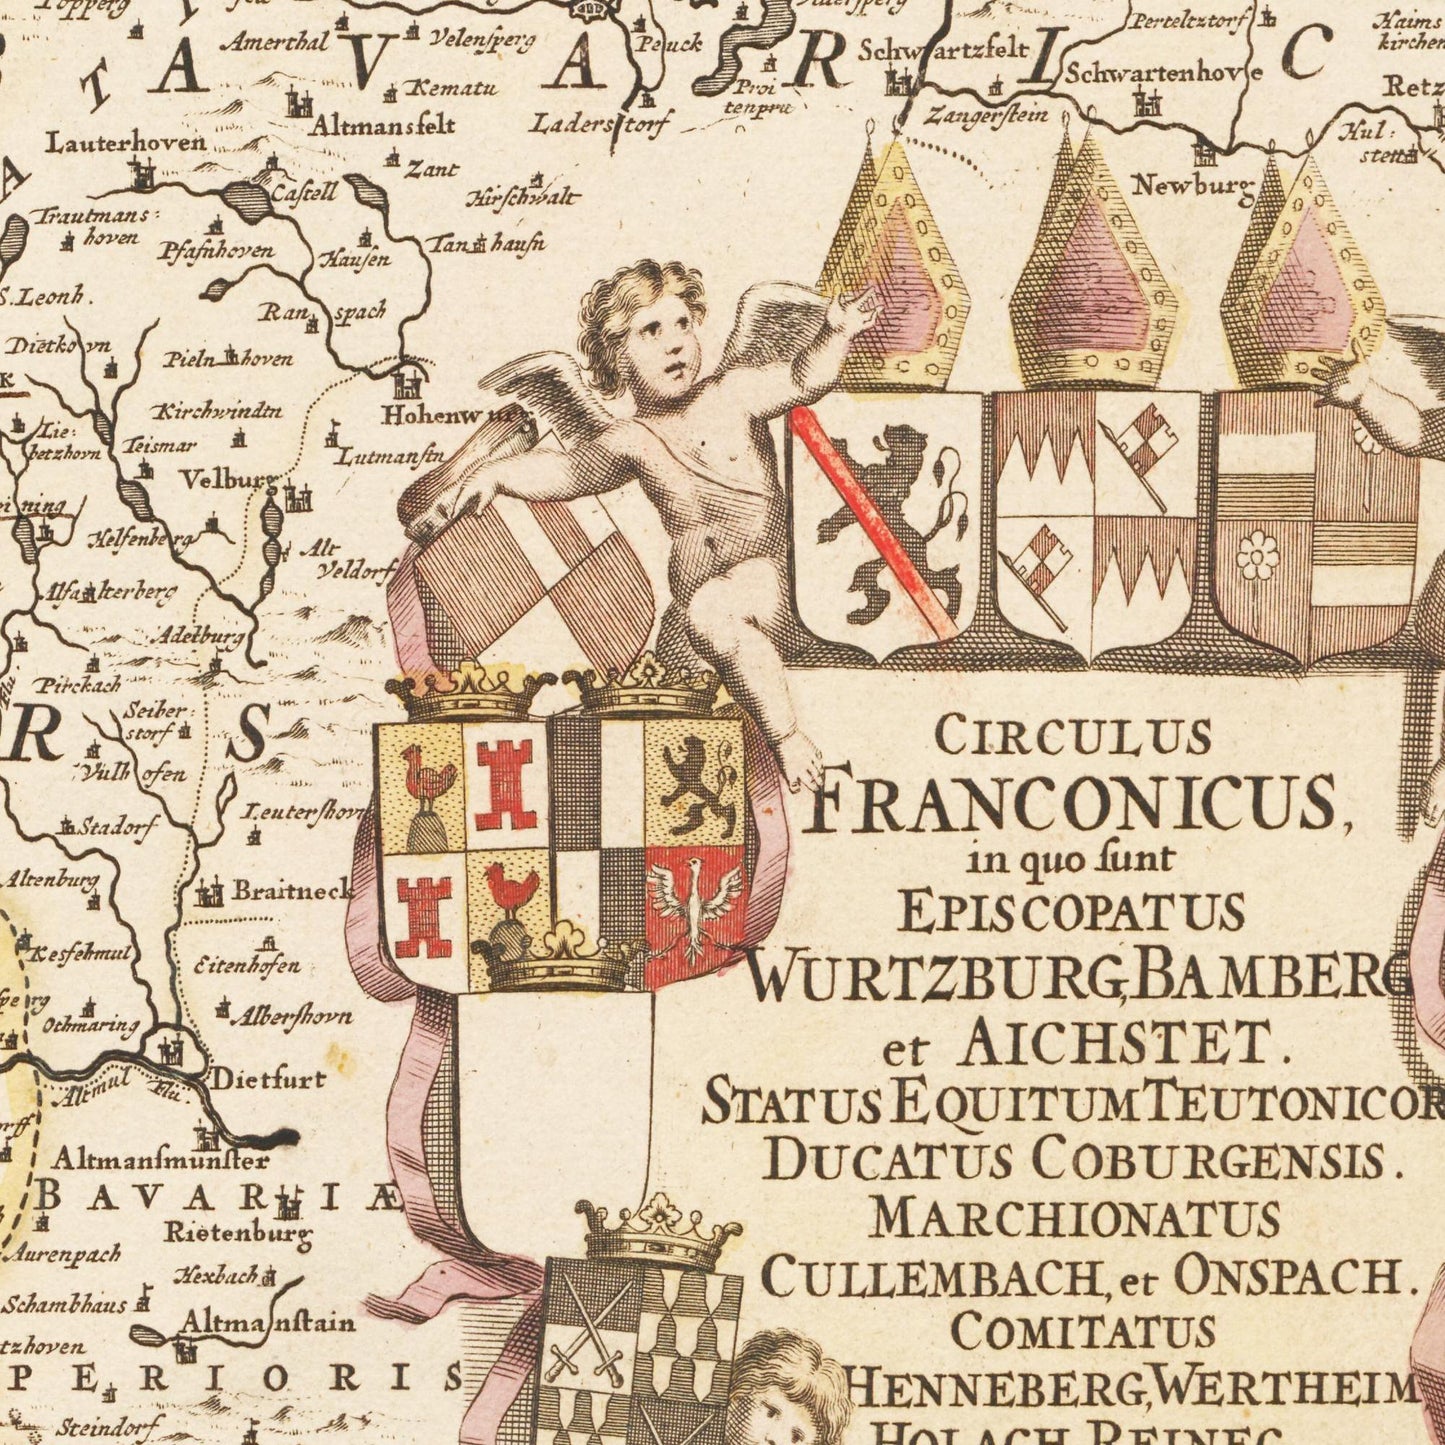 Amerthal
Velensperg
Peuck
Schwartzfelt
Perteltztorf
Haims
kirchen
T A V A R I C
Kematu
Schwartenhove
Retz
Altmansfelt
Laderstorf
Zangerstein
Hul-
Lauterhoven
Zant
Castell
Hirschwalt
Newburg
Trautmans:
hoven
Pfafnhoven
Hausen
Tanhausn
S. Leonh.
Ran spach
Dietkovn
Pieln hoven
Kirchwindtn
Hohenwurg
Lie:
betzhovn
Teismar
Lutmanstn
Velburg
Helfenberg
Alt
Veldorf
Alfalterberg
Adelburg
Pirckach
Seiber:
storf
R S
Vülhofen
Stadorf
Leutershovn
Altenburg
Braitneck
Kesfehmul
Eitenhofen
Othmaring
Albershovn
Altmul Flu.
Dietfurt
Altmansmunster
BAVARIÆ
Rietenburg
Aurenpach
Hexbach
Schambhaus
Altmanstain
tzhoven
PERIORIS
Steindorf
CIRCULUS
FRANCONICUS,
in quo sunt
EPISCOPATUS
WURTZBURG, BAMBERG
et AICHSTET.
STATUS EQUITUM TEUTONICOR
DUCATUS COBURGENSIS.
MARCHIONATUS
CULLEMBACH, et ONSPACH.
COMITATUS
HENNEBERG, WERTHEIM
HOLACH REINEC